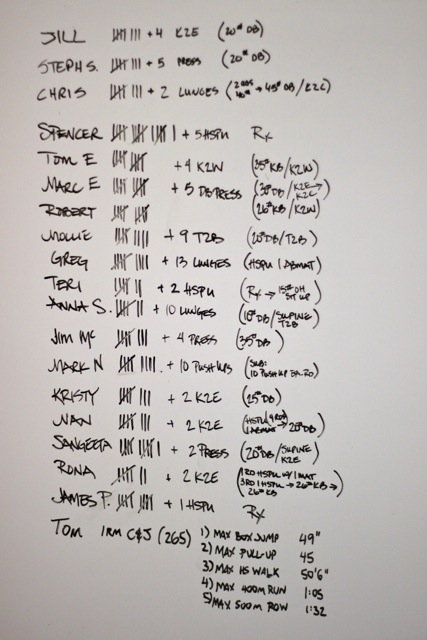 JILL 𝍸 III + 4 K2E (20# DB)
STEPH S. 𝍸 III + 5 PRESS (20# DB)
CHRIS 𝍸 III + 2 LUNGES (40# → 45# DB/K2C)
SPENCER 𝍸 𝍸 𝍸 I + 5 HSPU Rx
TOM E 𝍸 𝍸 + 4 K2W (35# KB/K2W)
MARC E 𝍸 𝍸 + 5 DB PRESS (30# DB/K2E → K2C)
ROBERT 𝍸 𝍸 (26# KB/K2W)
MOLLIE 𝍸 IIII + 9 T2B (20# DB/T2B)
GREG 𝍸 IIII + 13 LUNGES (HSPU 1 ABMAT)
TERI 𝍸 II + 2 HSPU (Rx → 15# OH SIT UP)
ANNA S. 𝍸 II + 10 LUNGES (10# DB/SUPINE T2B)
JIM MC 𝍸 III + 4 PRESS (35# DB)
MARK N 𝍸 IIII + 10 PUSH UPS (SUB: 10 PUSH UP EA. RD)
KRISTY 𝍸 III + 2 K2E (25# DB)
NAN 𝍸 III + 2 K2E (HSPU 1 ABMAT → 20# DB)
SANGEETA 𝍸 𝍸 I + 2 PRESS (20# DB/SUPINE K2E)
RONA 𝍸 II + 2 K2E (1 RD HSPU W/ 1 MAT 3RD 1 HSPU → 26# KB → 26# KB)
JAMES P. 𝍸 𝍸 + 1 HSPU Rx
TOM 1RM C&J (265) 1) MAX BOX JUMP 49"
2) MAX PULL-UP 45
3) MAX HS WALK 50'6"
4) MAX 400M RUN 1:05
5) MAX 500M ROW 1:32